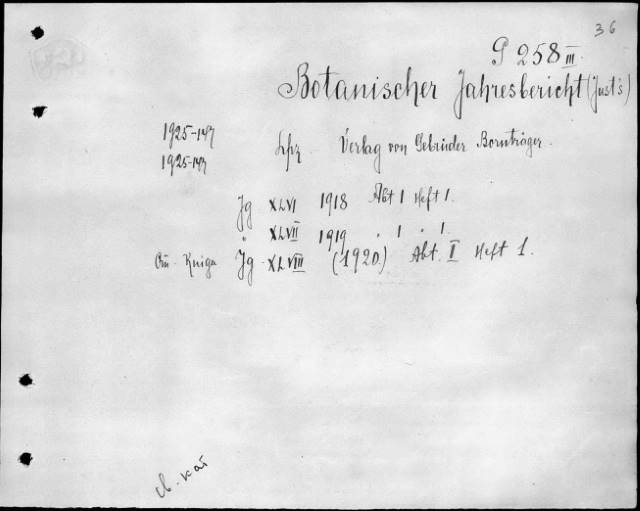 36
P 258 III.
Botanischer Jahresbericht (Just's)
1925-147
1925-147
Lpz. Verlag von Gebrüder Bornträger.
Jg XLVI 1918 Abt 1 Heft 1.
" XLVII 1919 " 1 " 1.
Kniga Jg. XLVIII (1920.) Abt. II Heft 1.
kat